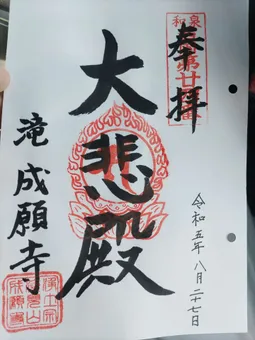 和泉
奉拝
令和五年八月二十七日
大悲殿
滝 成願寺
成願寺